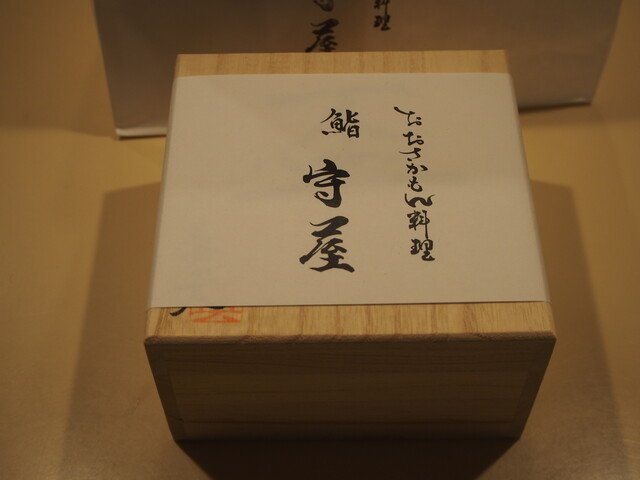 おおさかもん料理
鮨 守屋
料理
守屋